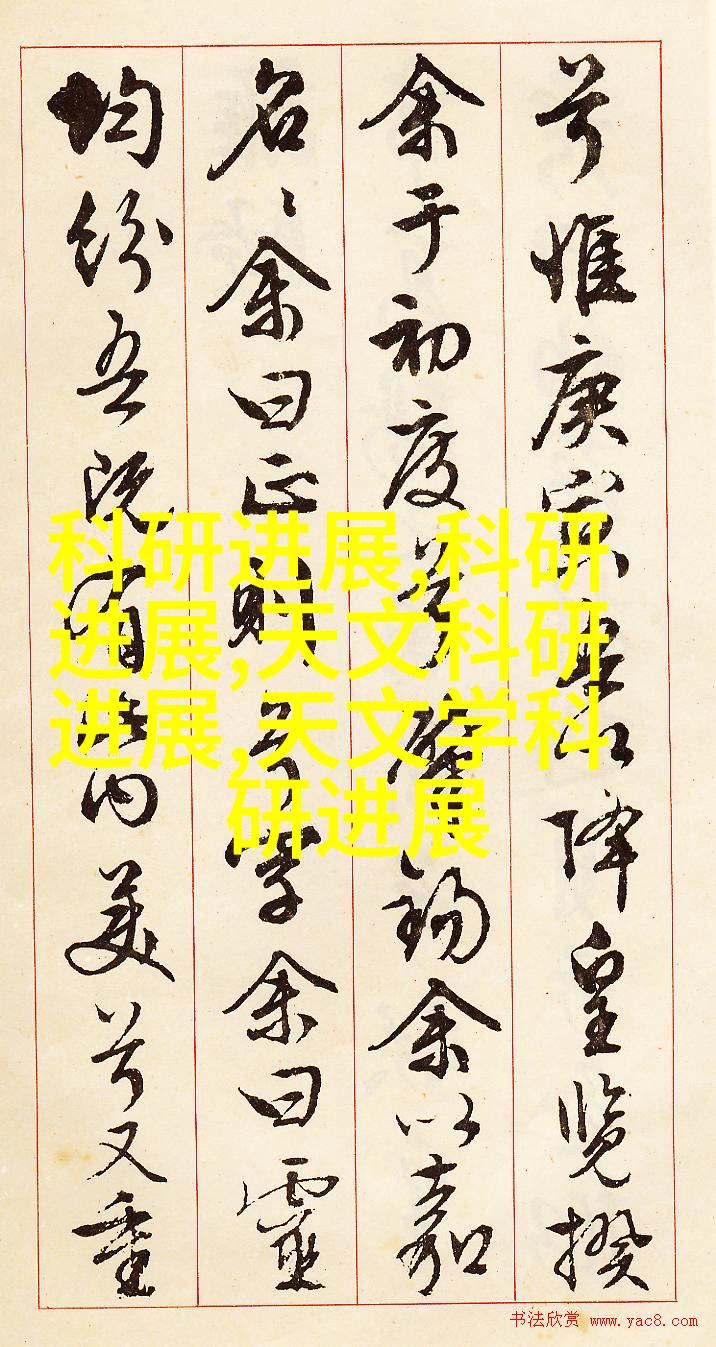 兮惟庚寅吾以降皇览揆
余于初度兮肇锡余以嘉
名〻余曰正则兮字余曰靈
均纷吾既有此内美兮又重
科研进展,科研
进展,天文科研
进展,天文学科
研进展
书法欣赏 www.yac8.com